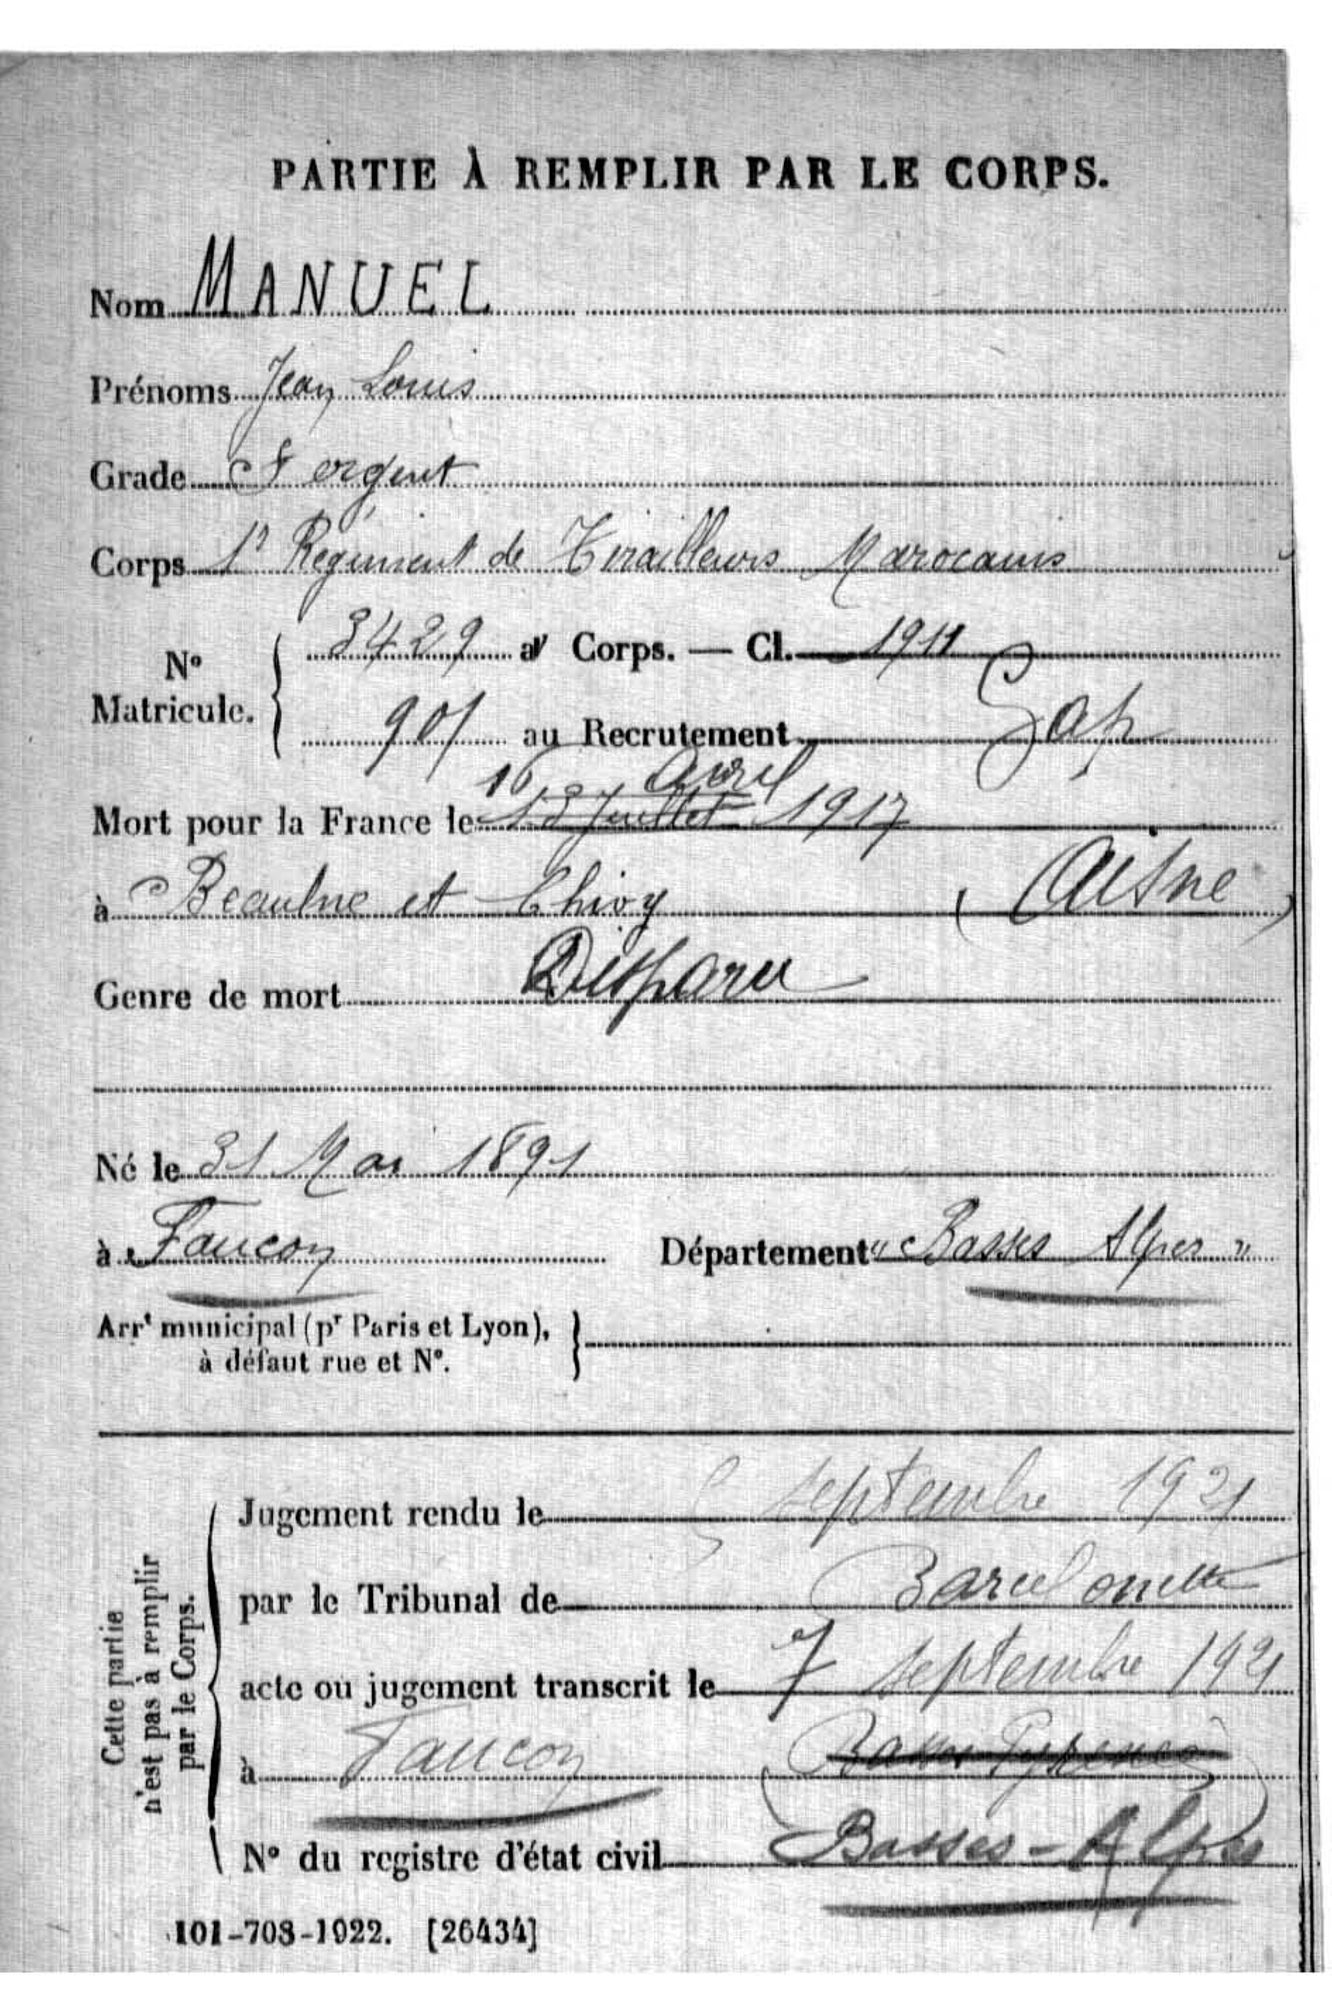 PARTIE À REMPLIR PAR LE CORPS.
Nom MANUEL
Prénoms Jean Louis
Grade Sergent
Corps 1r Régiment de Tirailleurs Marocains
N° Matricule. { 3429 au Corps. — Cl. 1911
901 au Recrutement Gap
16 Avril
Mort pour la France le 13 Juillet 1917
à Beaulne et Chivy (Aisne)
Genre de mort Disparu
Né le 31 Mai 1891
à Faucon Département "Basses Alpes"
Arrt municipal (pr Paris et Lyon), }
à défaut rue et N°.
Cette partie
n'est pas à remplir
par le Corps.
Jugement rendu le septembre 1921
par le Tribunal de Barcelonnette
acte ou jugement transcrit le 7 septembre 1921
à Faucon (Basses Pyrénées)
N° du registre d'état civil Basses-Alpes
101-708-1922. [26434]